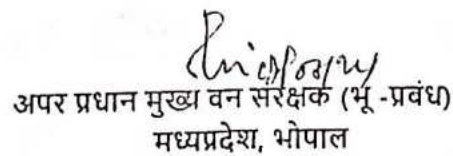 अपर प्रधान मुख्य वन संरक्षक (भू -प्रवंध)
मध्यप्रदेश, भोपाल